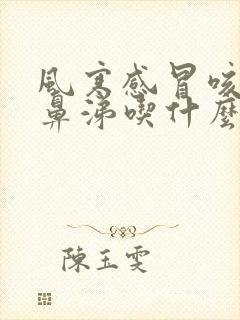 風寒感冒咳
鼻涕喫什麼
陳玉雯